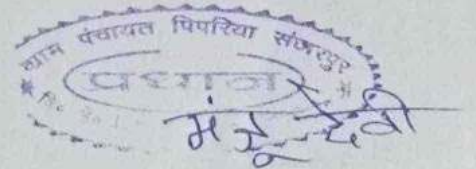 ग्राम पंचायत पिपरिया संजरपुर
प्रधान
मंजू देवी